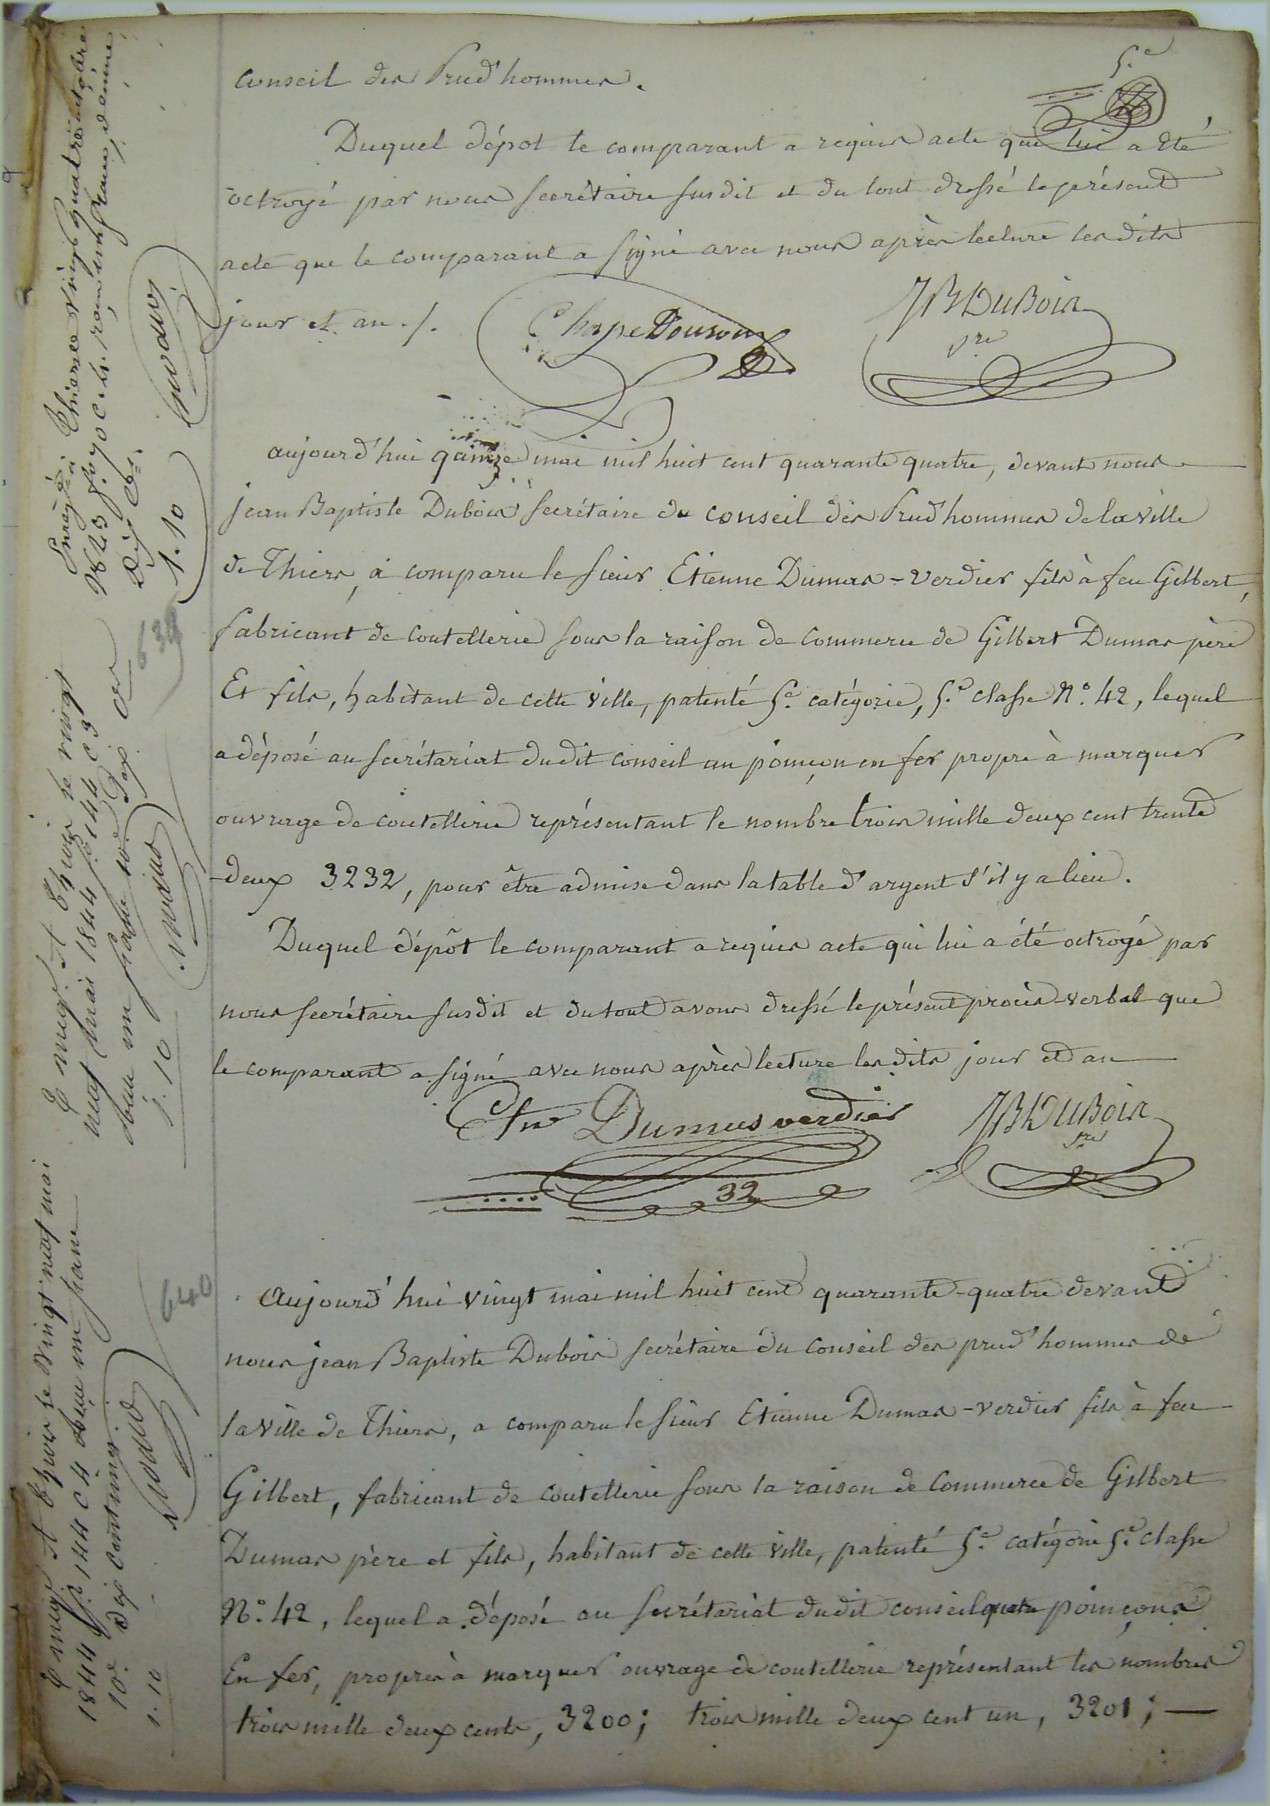 5.e
conseil des Prud'hommes.
Duquel dépot le comparant a requis acte qui lui a été
octroyé par nous secrétaire susdit et du tout dressé le présent
acte que le comparant a signé avec nous après lecture lesdits
jour et an ./.
JB DuBois
sre
aujourd'hui quinze mai mil huit cent quarante quatre, devant nous
jean Baptiste Dubois secrétaire du conseil des Prud'hommes de la ville
de Thiers, a comparu le sieur Etienne Dumas-Verdier fils à feu Gilbert,
fabricant de coutellerie sous la raison de commerce de Gilbert Dumas père
Et fils, habitant de cette ville, patenté 5.e catégorie, 5.e classe N.o 42, lequel
a déposé au secrétariat dudit conseil un poinçon en fer propre à marquer
ouvrage de coutellerie représentant le nombre trois mille deux cent trente
-deux 3232, pour être admise dans la table d'argent s'il y a lieu.
Duquel dépôt le comparant a requis acte qui lui a été octroyé par
nous secrétaire susdit et du tout avons dressé le présent procès-verbal que
le comparant a signé avec nous après lecture lesdits jour et an
Etne Dumas verdier
JB DuBois
sre
32
Aujourd'hui vingt mai mil huit cent quarante-quatre devant
nous jean Baptiste Dubois secrétaire du conseil des prud'hommes de
la ville de Thiers, a comparu le sieur Etienne Dumas-Verdier fils à feu
Gilbert, fabricant de coutellerie sous la raison de commerce de Gilbert
Dumas père et fils, habitant de cette ville, patenté 5.e catégorie 5.e classe
N.o 42, lequel a déposé au secrétariat dudit conseil quatre poinçons
En fer, propres à marquer ouvrage de coutellerie représentant les nombres
trois mille deux cents, 3200; trois mille deux cent un, 3201;
1.10
639
Enregt. A Thiers le vingt
neuf mai 1844 fo 144 C 3
Reçu un franc 10e Dix ces
1.10
640
Enregt. A Thiers le Vingt neuf mai
1844 fo 144 C 4 Reçu un franc
10e dix centimes
1.10